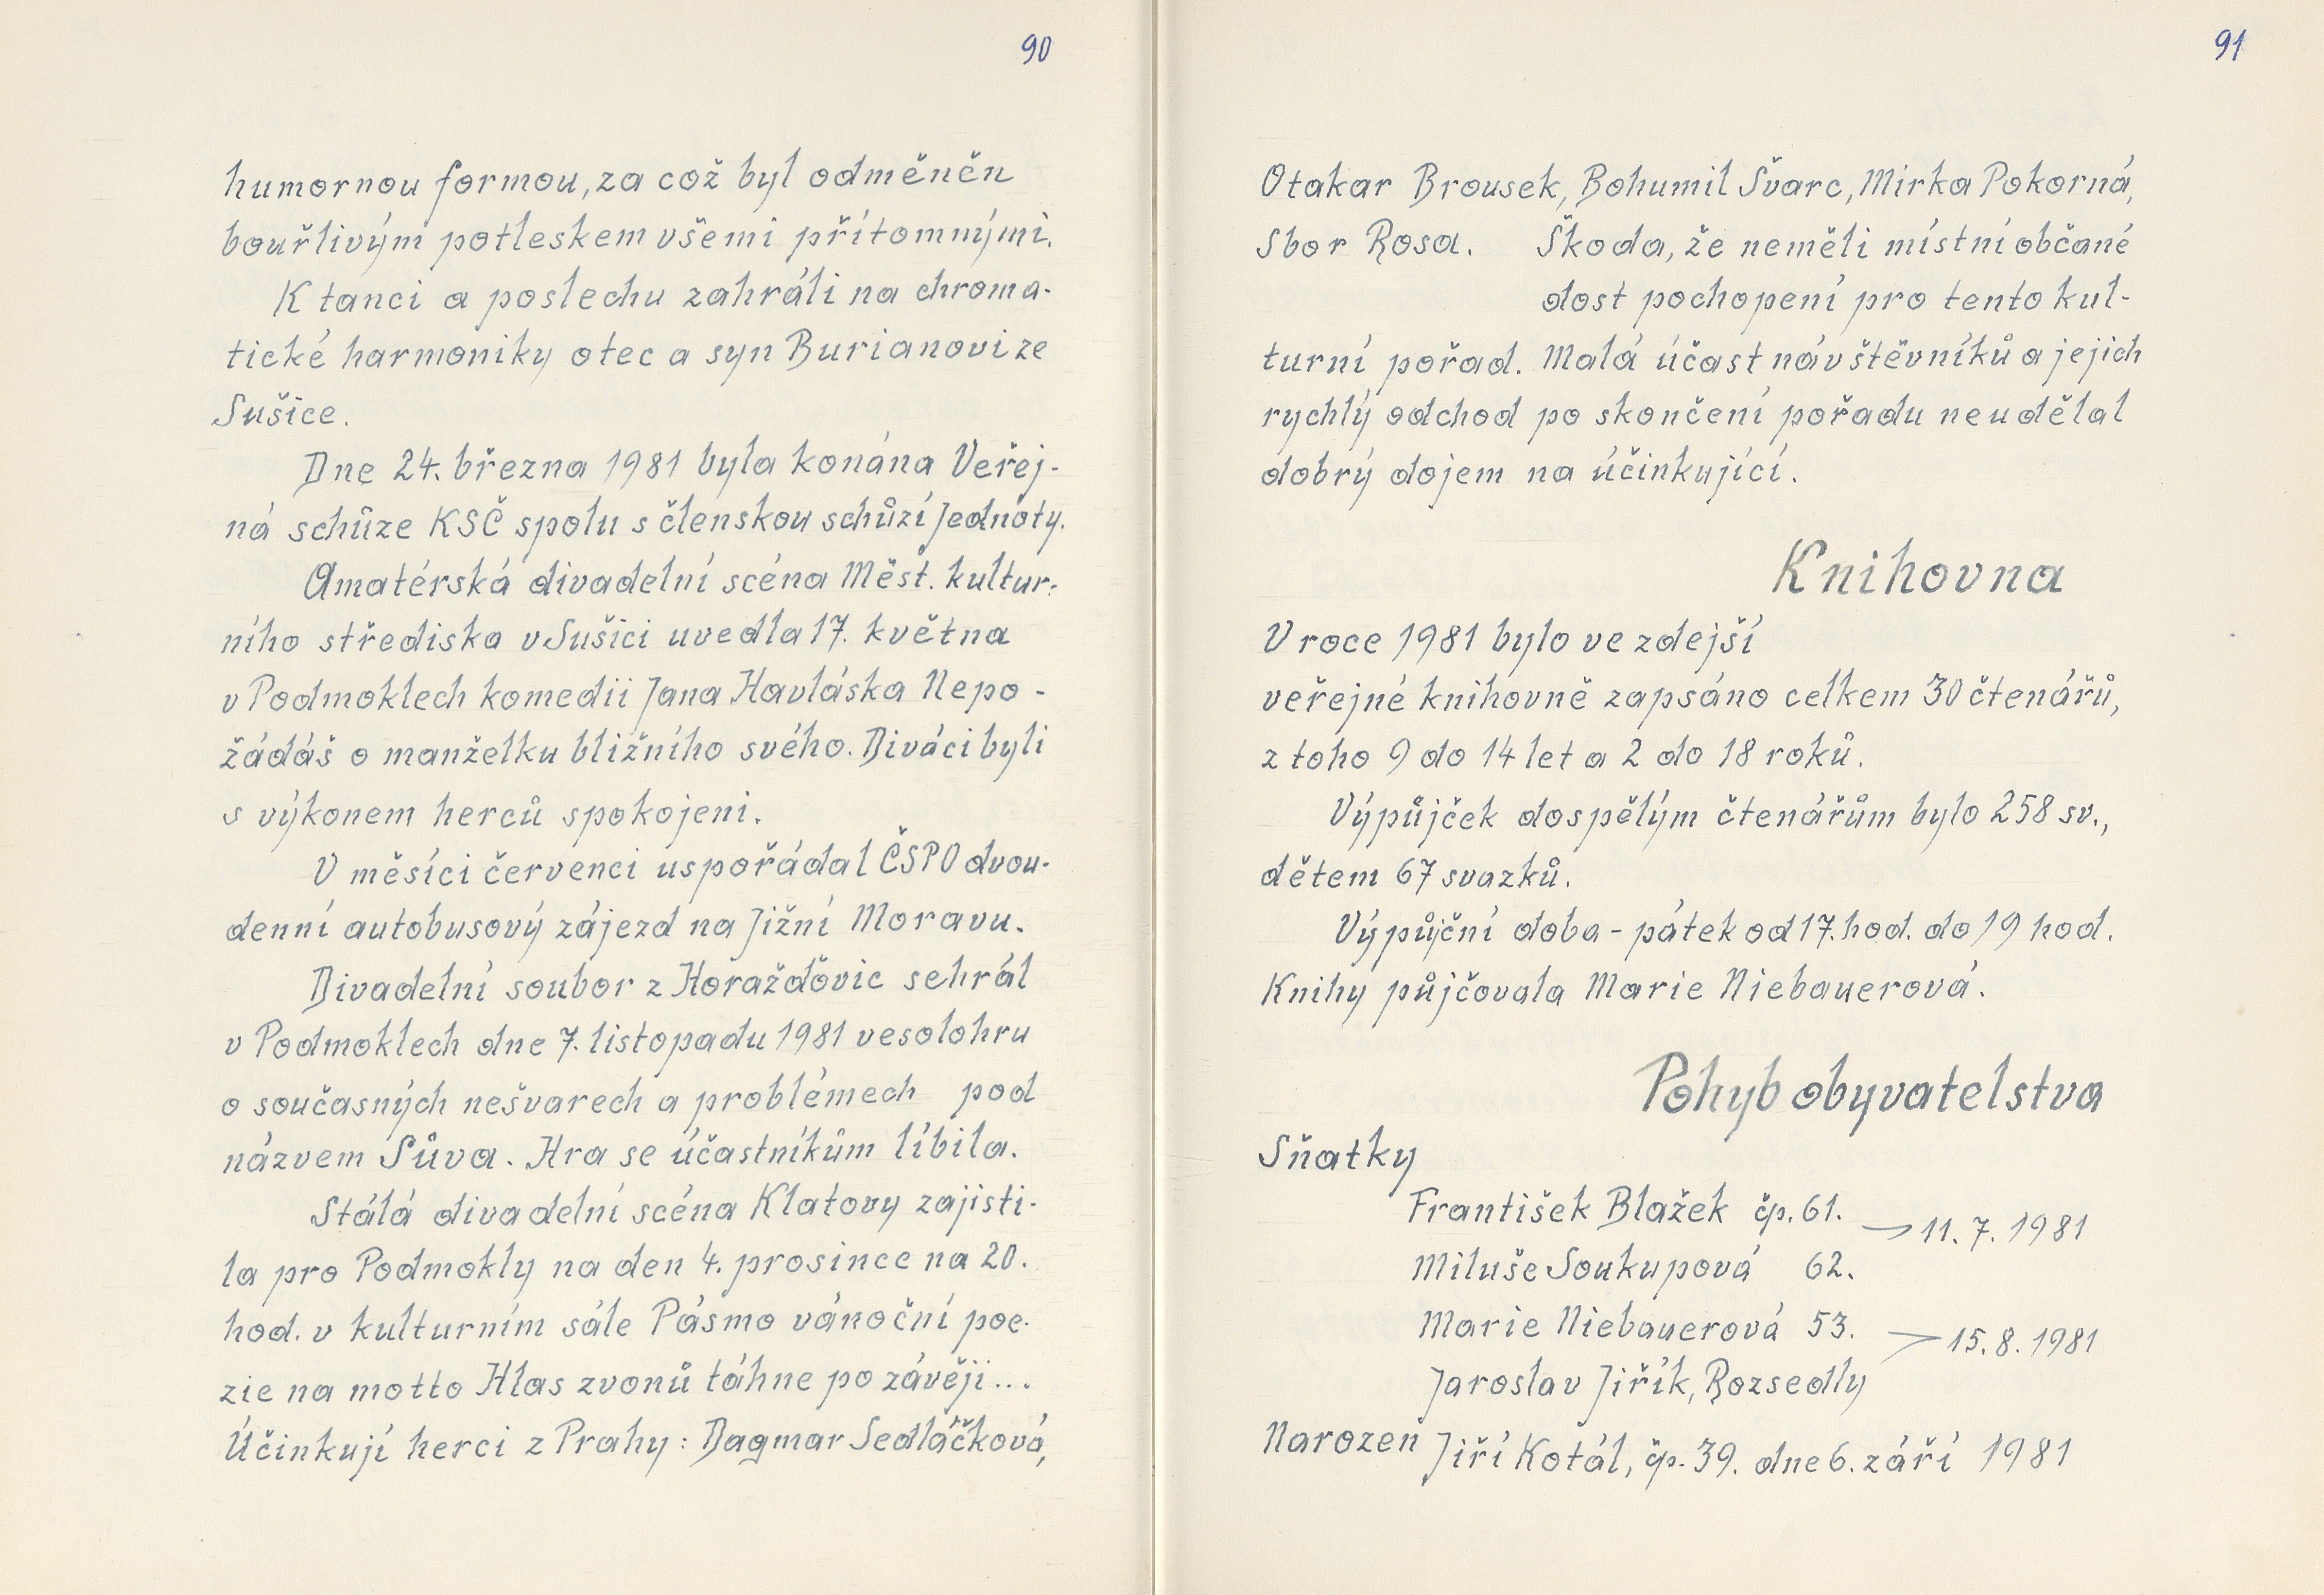 90
humornou formou, za což byl odměněn
bouřlivým potleskem všemi přítomnými.
K tanci a poslechu zahráli na chroma-
tické harmoniky otec a syn Burianovi ze
Sušice.
Dne 24. března 1981 byla konána Veřej-
ná schůze KSČ spolu s členskou schůzí Jednoty.
Amatérská divadelní scéna Měst. kultur-
ního střediska v Sušici uvedla 17. května
v Podmoklech komedii Jana Havláska Nepo-
žádáš o manželku bližního svého. Diváci byli
s výkonem herců spokojeni.
V měsíci červenci uspořádal ČSPO dvou-
denní autobusový zájezd na Jižní Moravu.
Divadelní soubor z Horažďovic sehrál
v Podmoklech dne 7. listopadu 1981 vesolohru
o současných nešvarech a problémech pod
názvem Sůva. Hra se účastníkům líbila.
Stálá divadelní scéna Klatovy zajisti-
la pro Podmokly na den 4. prosince na 20.
hod. v kulturním sále Pásmo vánoční poe-
zie na motto Hlas zvonů táhne po závěji...
Účinkují herci z Prahy: Dagmar Sedláčková,
91
Otakar Brousek, Bohumil Švarc, Mirka Pokorná,
Sbor Rosa. Škoda, že neměli místní občané
dost pochopení pro tento kul-
turní pořad. Malá účast návštěvníků a jejich
rychlý odchod po skončení pořadu neudělal
dobrý dojem na účinkující.
Knihovna
V roce 1981 bylo ve zdejší
veřejné knihovně zapsáno celkem 30 čtenářů,
z toho 9 do 14 let a 2 do 18 roků.
Výpůjček dospělým čtenářům bylo 258 sv.,
dětem 67 svazků.
Výpůjční doba - pátek od 17. hod. do 19 hod.
Knihy půjčovala Marie Niebauerová.
Pohyb obyvatelstva
Sňatky
František Blažek čp. 61.
11. 7. 1981
Miluše Soukupová 62.
Marie Niebauerová 53.
15. 8. 1981
Jaroslav Jiřík, Rozsedly
Narozen Jiří Kotál, čp. 39. dne 6. září 1981